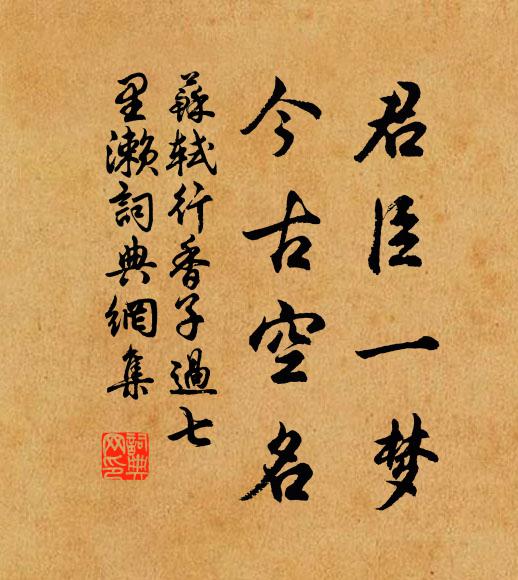 君臣一梦
今古空名
蘇軾行香子過七
里濑詞典網集
詞典
网印